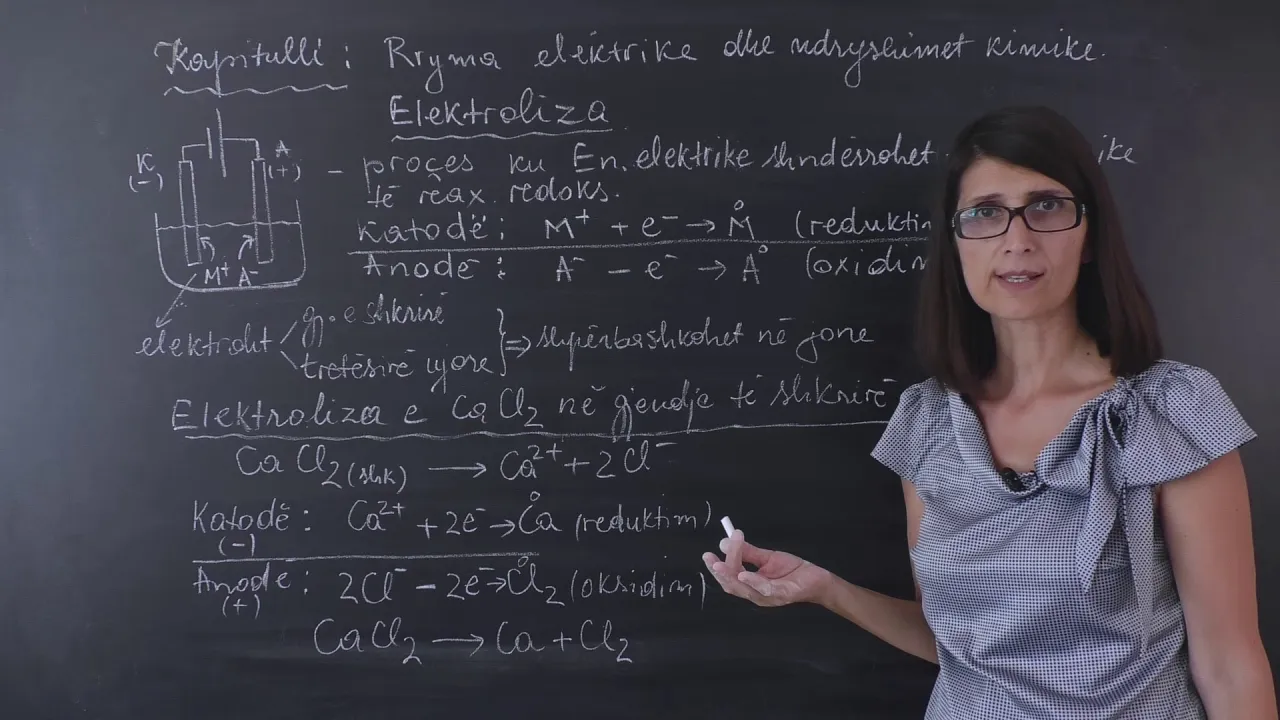 Kapitulli: Rryma elektrike dhe ndryshimet kimike.
Elektroliza
K
(-)
A
(+)
M⁺ A⁻
- proçes ku En. elektrike shndërrohet
të reax. redoks.
Katodë: M⁺ + e⁻ → M° (reduktim
Anodë: A⁻ - e⁻ → A° (oxidim
elektrolit
gj. e shkrirë
tretësirë ujore
} ⇒ shpërbashkohet në jone
Elektroliza e CaCl₂ në gjendje të shkrirë
CaCl₂(shk) → Ca²⁺ + 2Cl⁻
Katodë: Ca²⁺ + 2e⁻ → Ca° (reduktim)
(-)
Anodë: 2Cl⁻ - 2e⁻ → Cl°₂ (oksidim)
(+)
CaCl₂ → Ca + Cl₂